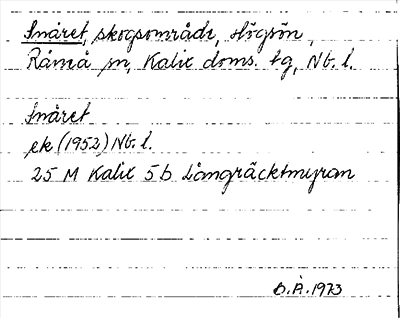 Snåret, skogsområde, Högsön,
Råneå sn, Kalix doms. tg, Nb. l.
Snåret
ek (1952) Nb. l.
25 M Kalix 5 b Långräcktmyran
B.Å. 1973